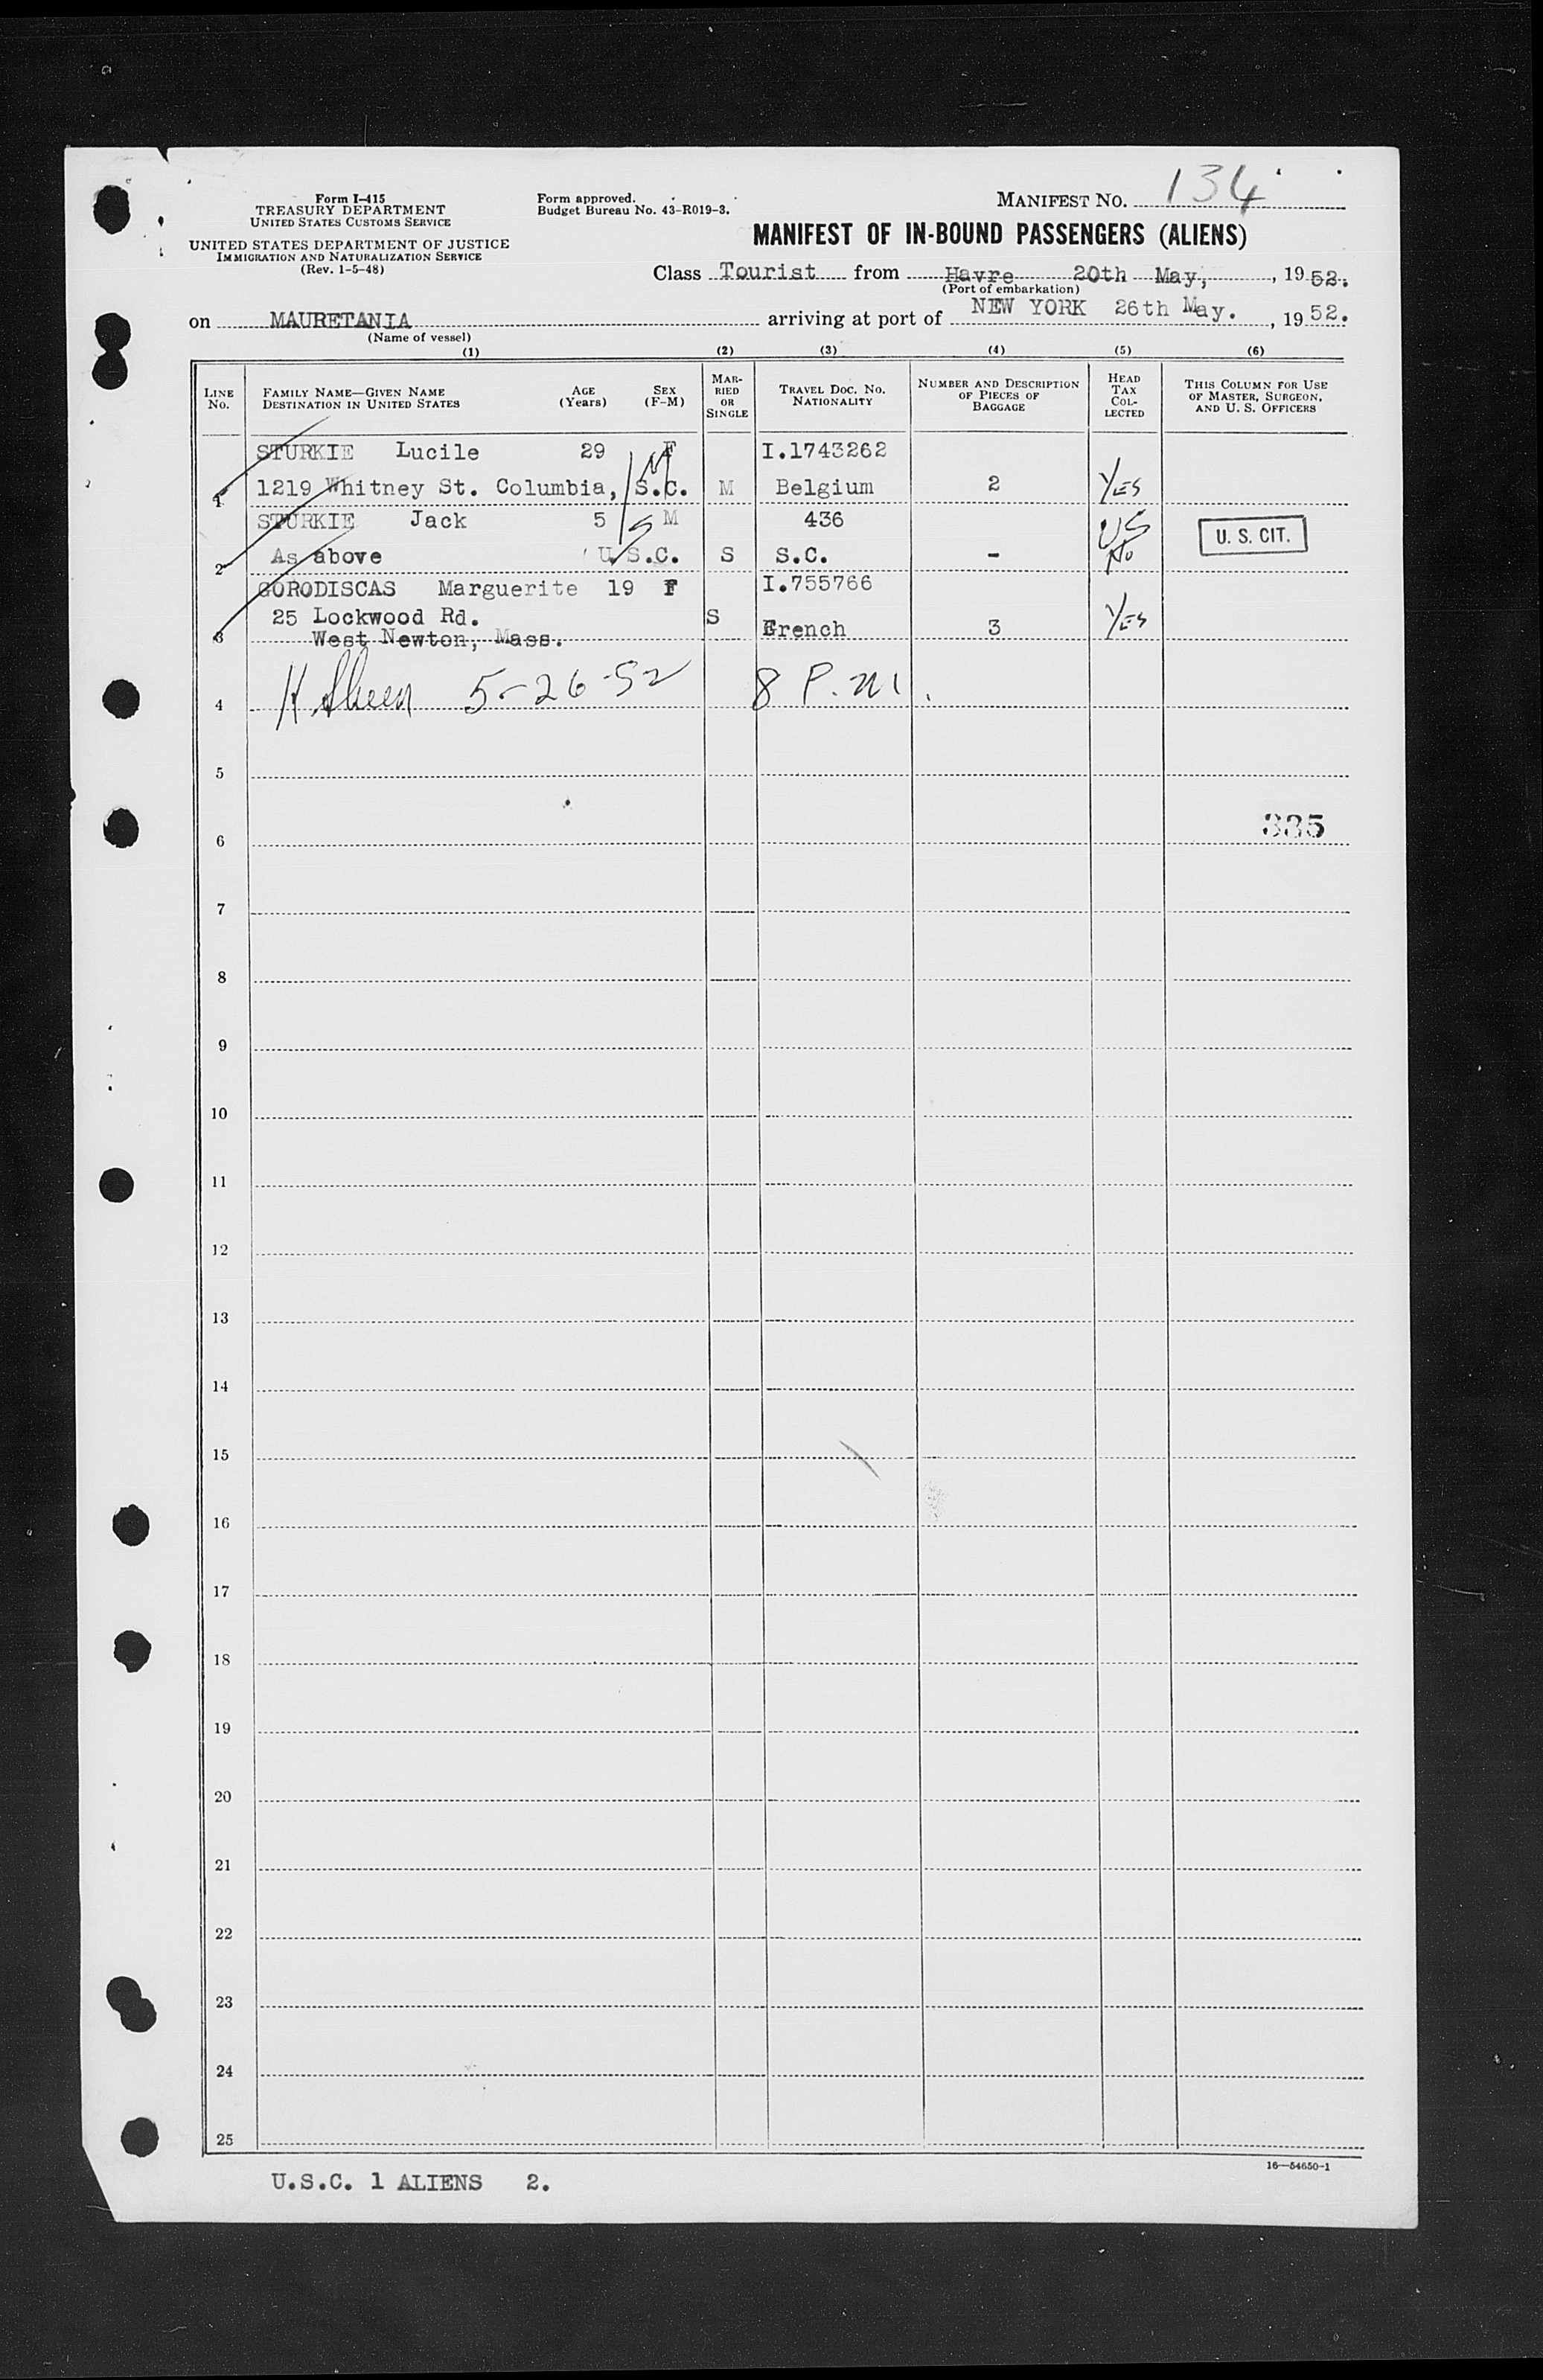 Form I-415
TREASURY DEPARTMENT
UNITED STATES CUSTOMS SERVICE
UNITED STATES DEPARTMENT OF JUSTICE
IMMIGRATION AND NATURALIZATION SERVICE
(Rev. 1-5-48)
Form approved.
Budget Bureau No. 43-R019-3.
MANIFEST NO. 134
MANIFEST OF IN-BOUND PASSENGERS (ALIENS)
Class Tourist from Havre 20th May, , 1952.
(Port of embarkation)
on MAURETANIA arriving at port of NEW YORK 26th May. , 1952.
(Name of vessel)
(1) (2) (3) (4) (5) (6)
LINE No. FAMILY NAME—GIVEN NAME DESTINATION IN UNITED STATES AGE (Years) SEX (F-M) MARRIED OR SINGLE TRAVEL DOC. NO. NATIONALITY NUMBER AND DESCRIPTION OF PIECES OF BAGGAGE HEAD TAX COLLECTED THIS COLUMN FOR USE OF MASTER, SURGEON, AND U. S. OFFICERS
STURKIE Lucile 29 F I.1743262
M
1 1219 Whitney St. Columbia, S.C. M Belgium 2 YES
STURKIE Jack 5 M 436 US U. S. CIT.
S
2 As above U.S.C. S S.C. - No
GORODISCAS Marguerite 19 F I.755766
25 Lockwood Rd. S
3 West Newton, Mass. French 3 YES
4 5-26-52 8 P.M.
5
6 335
7
8
9
10
11
12
13
14
15
16
17
18
19
20
21
22
23
24
25
16—54650-1
U.S.C. 1 ALIENS 2.